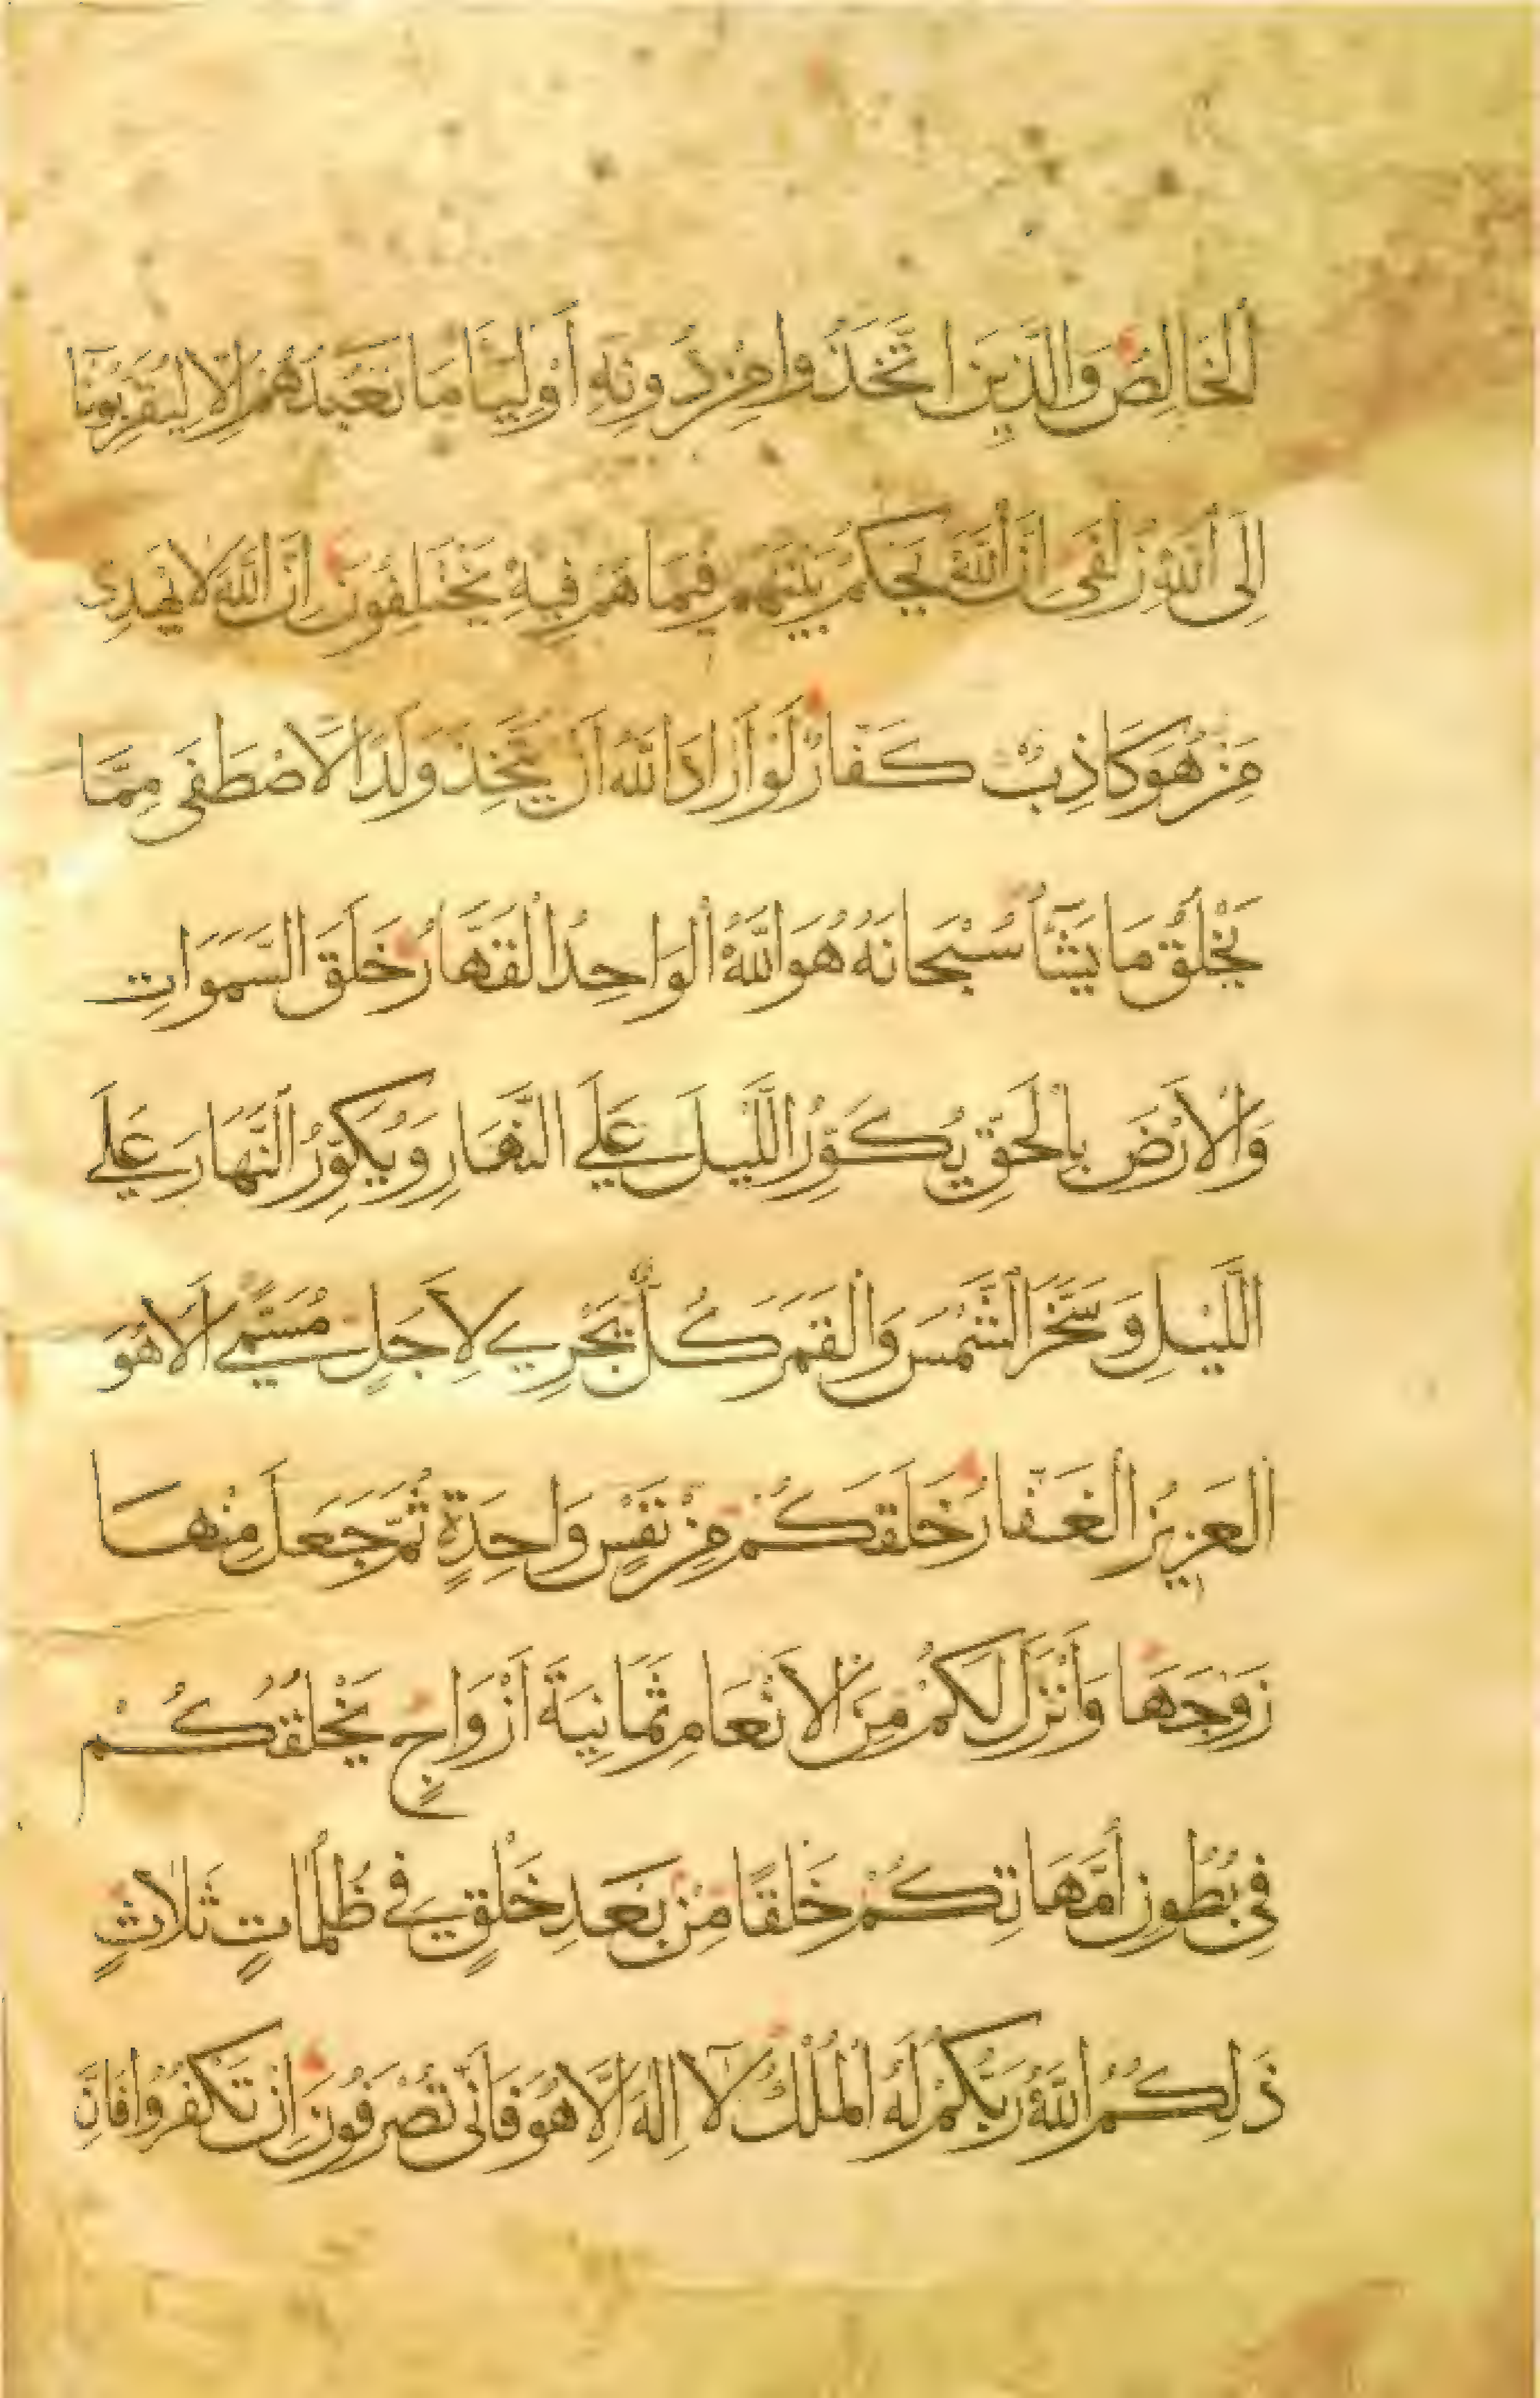 اَلْخَالِصُ وَالَّذِينَ اتَّخَذُوا مِنْ دُونِهِ أَوْلِيَاءَ مَا نَعْبُدُهُمْ إِلَّا لِيُقَرِّبُونَا
إِلَى اللَّهِ زُلْفَى إِنَّ اللَّهَ يَحْكُمُ بَيْنَهُمْ فِيمَا هُمْ فِيهِ يَخْتَلِفُونَ إِنَّ اللَّهَ لَا يَهْدِي
مَنْ هُوَ كَاذِبٌ كَفَّارٌ لَوْ أَرَادَ اللَّهُ أَنْ يَتَّخِذَ وَلَدًا لَاصْطَفَى مِمَّا
يَخْلُقُ مَا يَشَآءُ سُبْحَانَهُ هُوَ اللَّهُ الْوَاحِدُ الْقَهَّارُ خَلَقَ السَّمَوَاتِ
وَالْأَرْضَ بِالْحَقِّ يُكَوِّرُ اللَّيْلَ عَلَى النَّهَارِ وَيُكَوِّرُ النَّهَارَ عَلَى
اللَّيْلِ وَسَخَّرَ الشَّمْسَ وَالْقَمَرَ كُلٌّ يَجْرِي لِأَجَلٍ مُسَمًّى أَلَا هُوَ
الْعَزِيزُ الْغَفَّارُ خَلَقَكُمْ مِنْ نَفْسٍ وَاحِدَةٍ ثُمَّ جَعَلَ مِنْهَا
زَوْجَهَا وَأَنْزَلَ لَكُمْ مِنَ الْأَنْعَامِ ثَمَانِيَةَ أَزْوَاجٍ يَخْلُقُكُمْ
فِي بُطُونِ أُمَّهَاتِكُمْ خَلْقًا مِنْ بَعْدِ خَلْقٍ فِي ظُلُمَاتٍ ثَلَاثٍ
ذَلِكُمُ اللَّهُ رَبُّكُمْ لَهُ الْمُلْكُ لَآ إِلَهَ إِلَّا هُوَ فَأَنَّى تُصْرَفُونَ إِنْ تَكْفُرُوا فَإِنَّ